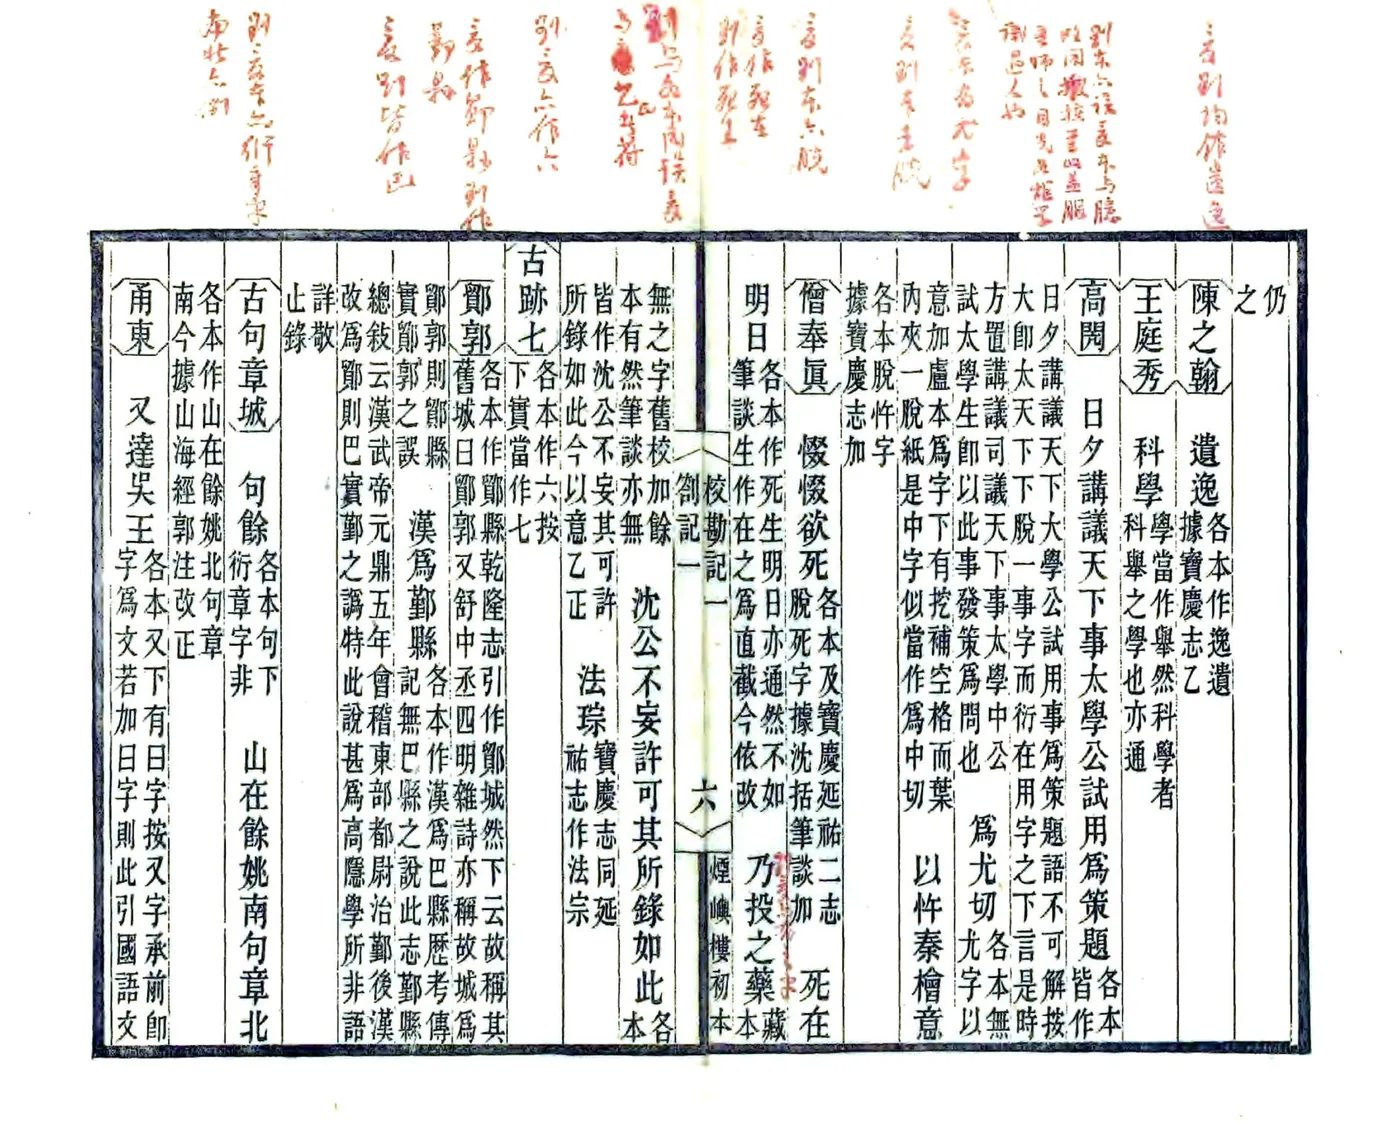 仍
之
陳之翰 遺逸
各本作逸遺
據寶慶志乙
王庭秀 科學
學當作舉然科學者
科舉之學也亦通
高閌 日夕講議天下事太學公試用爲策題
各本
皆作
日夕講議天下大學公試用事爲策題語不可解按
大卽太天下下脫一事字而衍在用字之下言是時
方置講議司議天下事太學中公
試太學生卽以此事發策爲問也
爲尤切
各本無
尤字以
意加盧本爲字下有挖補空格而葉
內夾一脫紙是中字似當作爲中切
以忤秦檜意
各本脫忤字
據寶慶志加
僧奉眞 惙惙欲死
各本及寶慶延祐二志
脫死字據沈括筆談加
死在
明日
各本作死生明日亦通然不如
筆談生作在之爲直截今依改
乃投之藥
藏
本
校勘記一
劄記一
六
煙嶼樓初本
無之字舊校加餘
本有然筆談亦無
沈公不妄許可其所錄如此
各
本
皆作沈公不妄其可許
所錄如此今以意乙正
法琮
寶慶志同延
祐志作法宗
古跡七
各本作六按
下實當作七
鄮郭
各本作鄮縣乾隆志引作鄮城然下云故稱其
舊城曰鄮郭又舒中丞四明雜詩亦稱故城爲
鄮郭則鄮縣
實鄮郭之誤
漢爲鄞縣
各本作漢爲巴縣歷考傳
記無巴縣之說此志鄞縣
總敍云漢武帝元鼎五年會稽東部都尉治鄞後漢
改爲鄮則巴實鄞之譌特此說甚爲高隱學所非語
詳敬
止錄
古句章城 句餘
各本句下
衍章字非
山在餘姚南句章北
各本作山在餘姚北句章
南今據山海經郭注改正
甬東 又達吳王
各本又下有曰字按又字承前卽
字爲文若加曰字則此引國語文